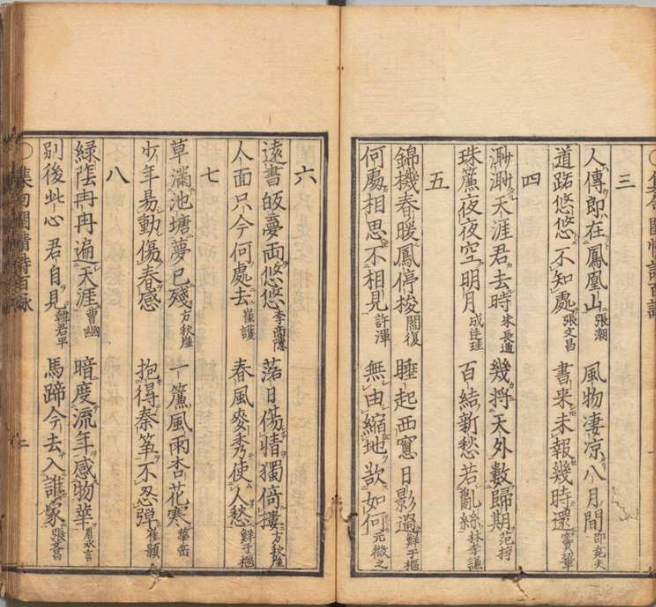 三
人傳即在鳳凰山張潮 風物凄凉八月間邵堯夫
道路悠悠不知處張文昌 書来未報幾時還竇鞏
四
渺渺天涯君去時朱長通 幾将天外數歸期范梈
珠簾夜夜空明月成廷珪 百結新愁若亂絲林李謙
五
錦機春暖鳳停梭關復 睡起西窻日影過鮮于樞
何處相思不相見許渾 無由縮地欲如何元微之
六
遠書皈夢两悠悠李商隱 落日傷情獨倚摟方秋崖
人面只今何處去崔護 春風麥秀使人愁鮮于樞
七
草滿池塘夢已殘方秋崖 一簾風雨杏花寒華岳
少年易動傷春感 抱得秦筝不忍弾崔顥
八
綠陰冉冉遍天涯曹豳 暗度流年感物華
別後此心君自見韓君平 馬蹄今去入誰家張
集句閨情詩百詠